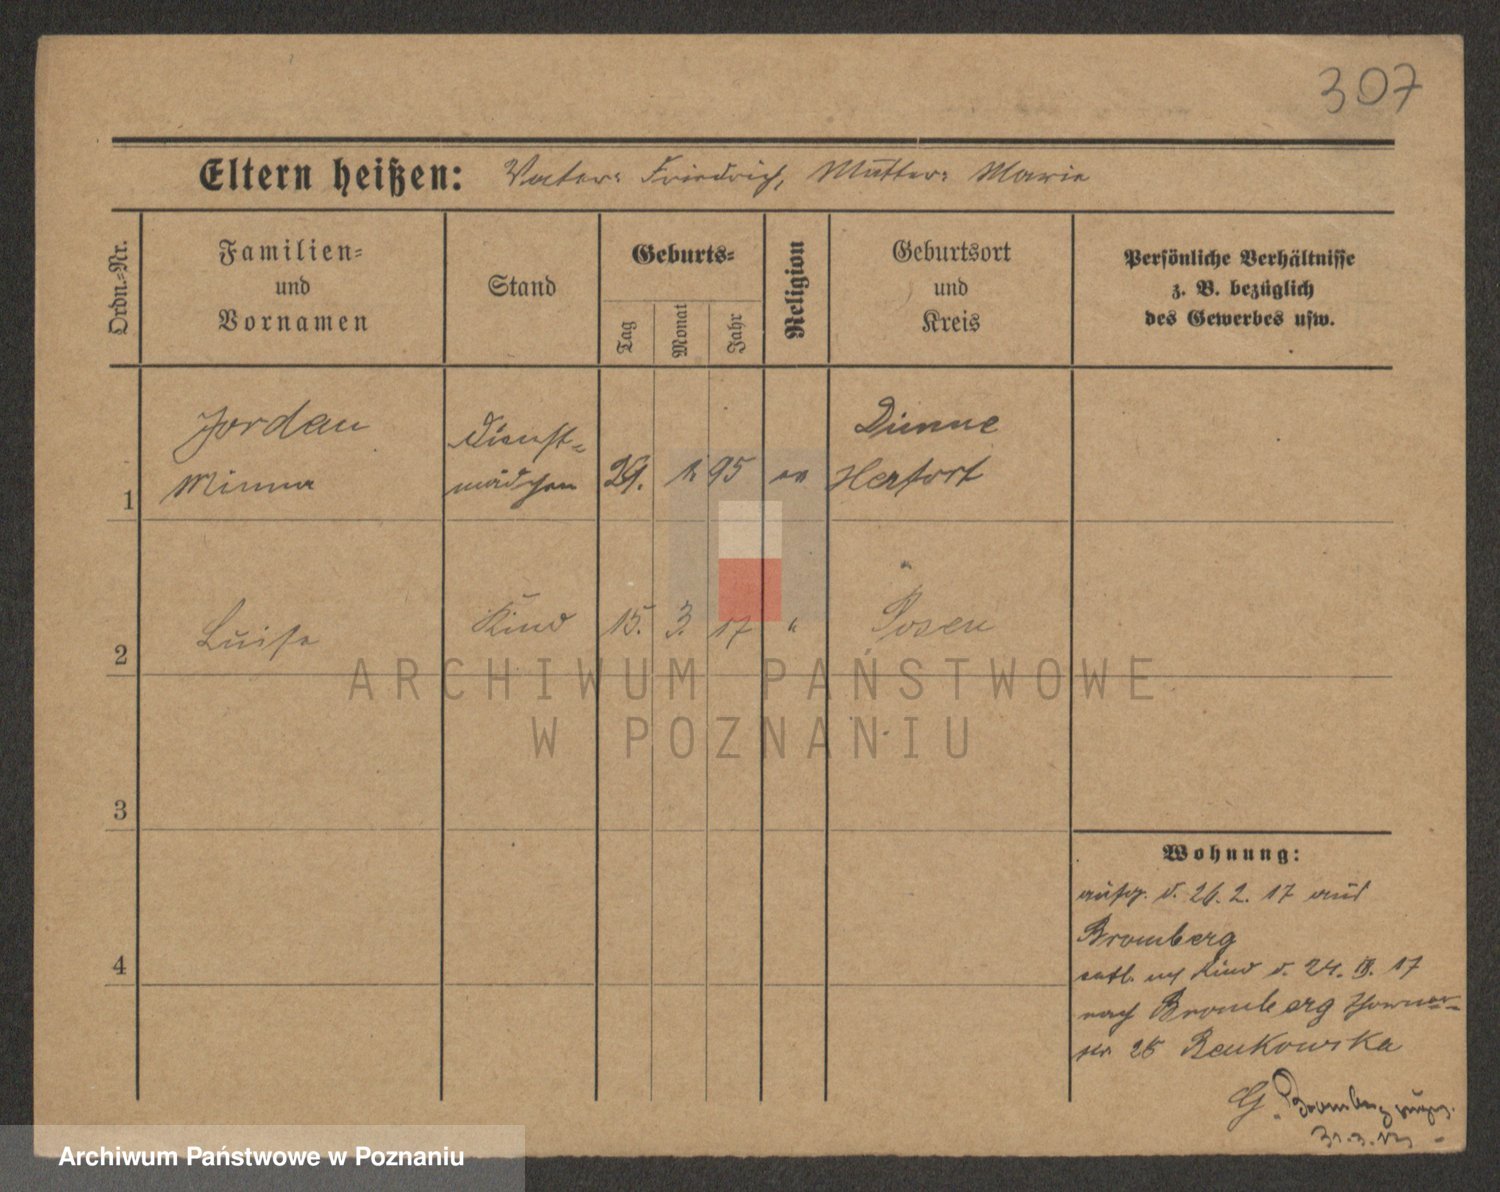 307
Eltern heißen: Vater: Friedrich, Mutter: Marie
Ordn.-Nr.
Familien-
und
Vornamen
Stand
Geburts-
Tag
Monat
Jahr
Religion
Geburtsort
und
Kreis
Persönliche Verhältnisse
z. B. bezüglich
des Gewerbes usw.
1
Jordan
Minna
Dienst-
mädchen
29. 95 ev
Dünne
Herford
2
Luise
Kind
15. 3. 17 "
Posen
ARCHIWUM PAŃSTWOWE
W POZNANIU
3
4
Wohnung:
d. 26. 2. 17 aus
Bromberg
entl. mit Kind d. 24. III. 17
nach Bromberg Thorner-
str 25 Benkowska
G. Bromberg
31.3.17
Archiwum Państwowe w Poznaniu